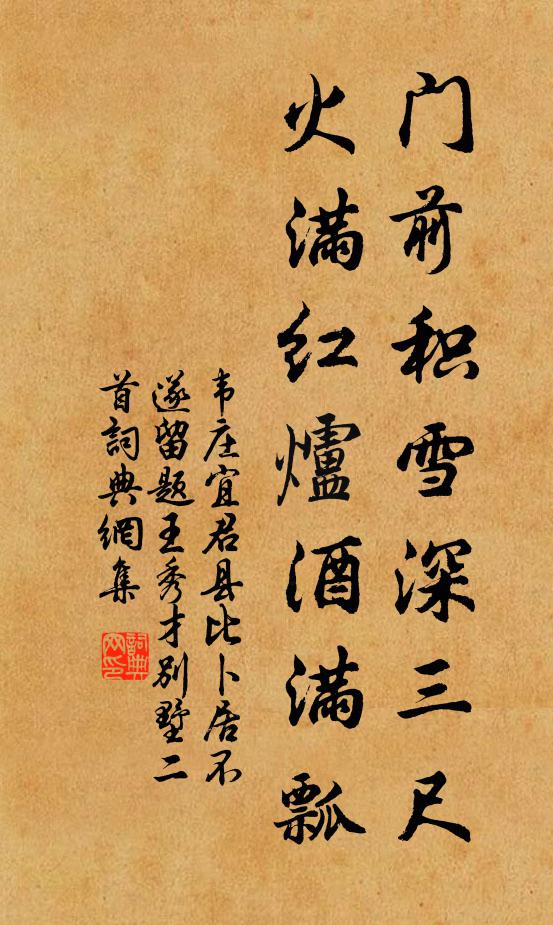 门前积雪深三尺
火满红爐酒满瓢
韦庄宜君县比卜居不
遂留题王秀才别墅二
首詞典網集
詞典
网印